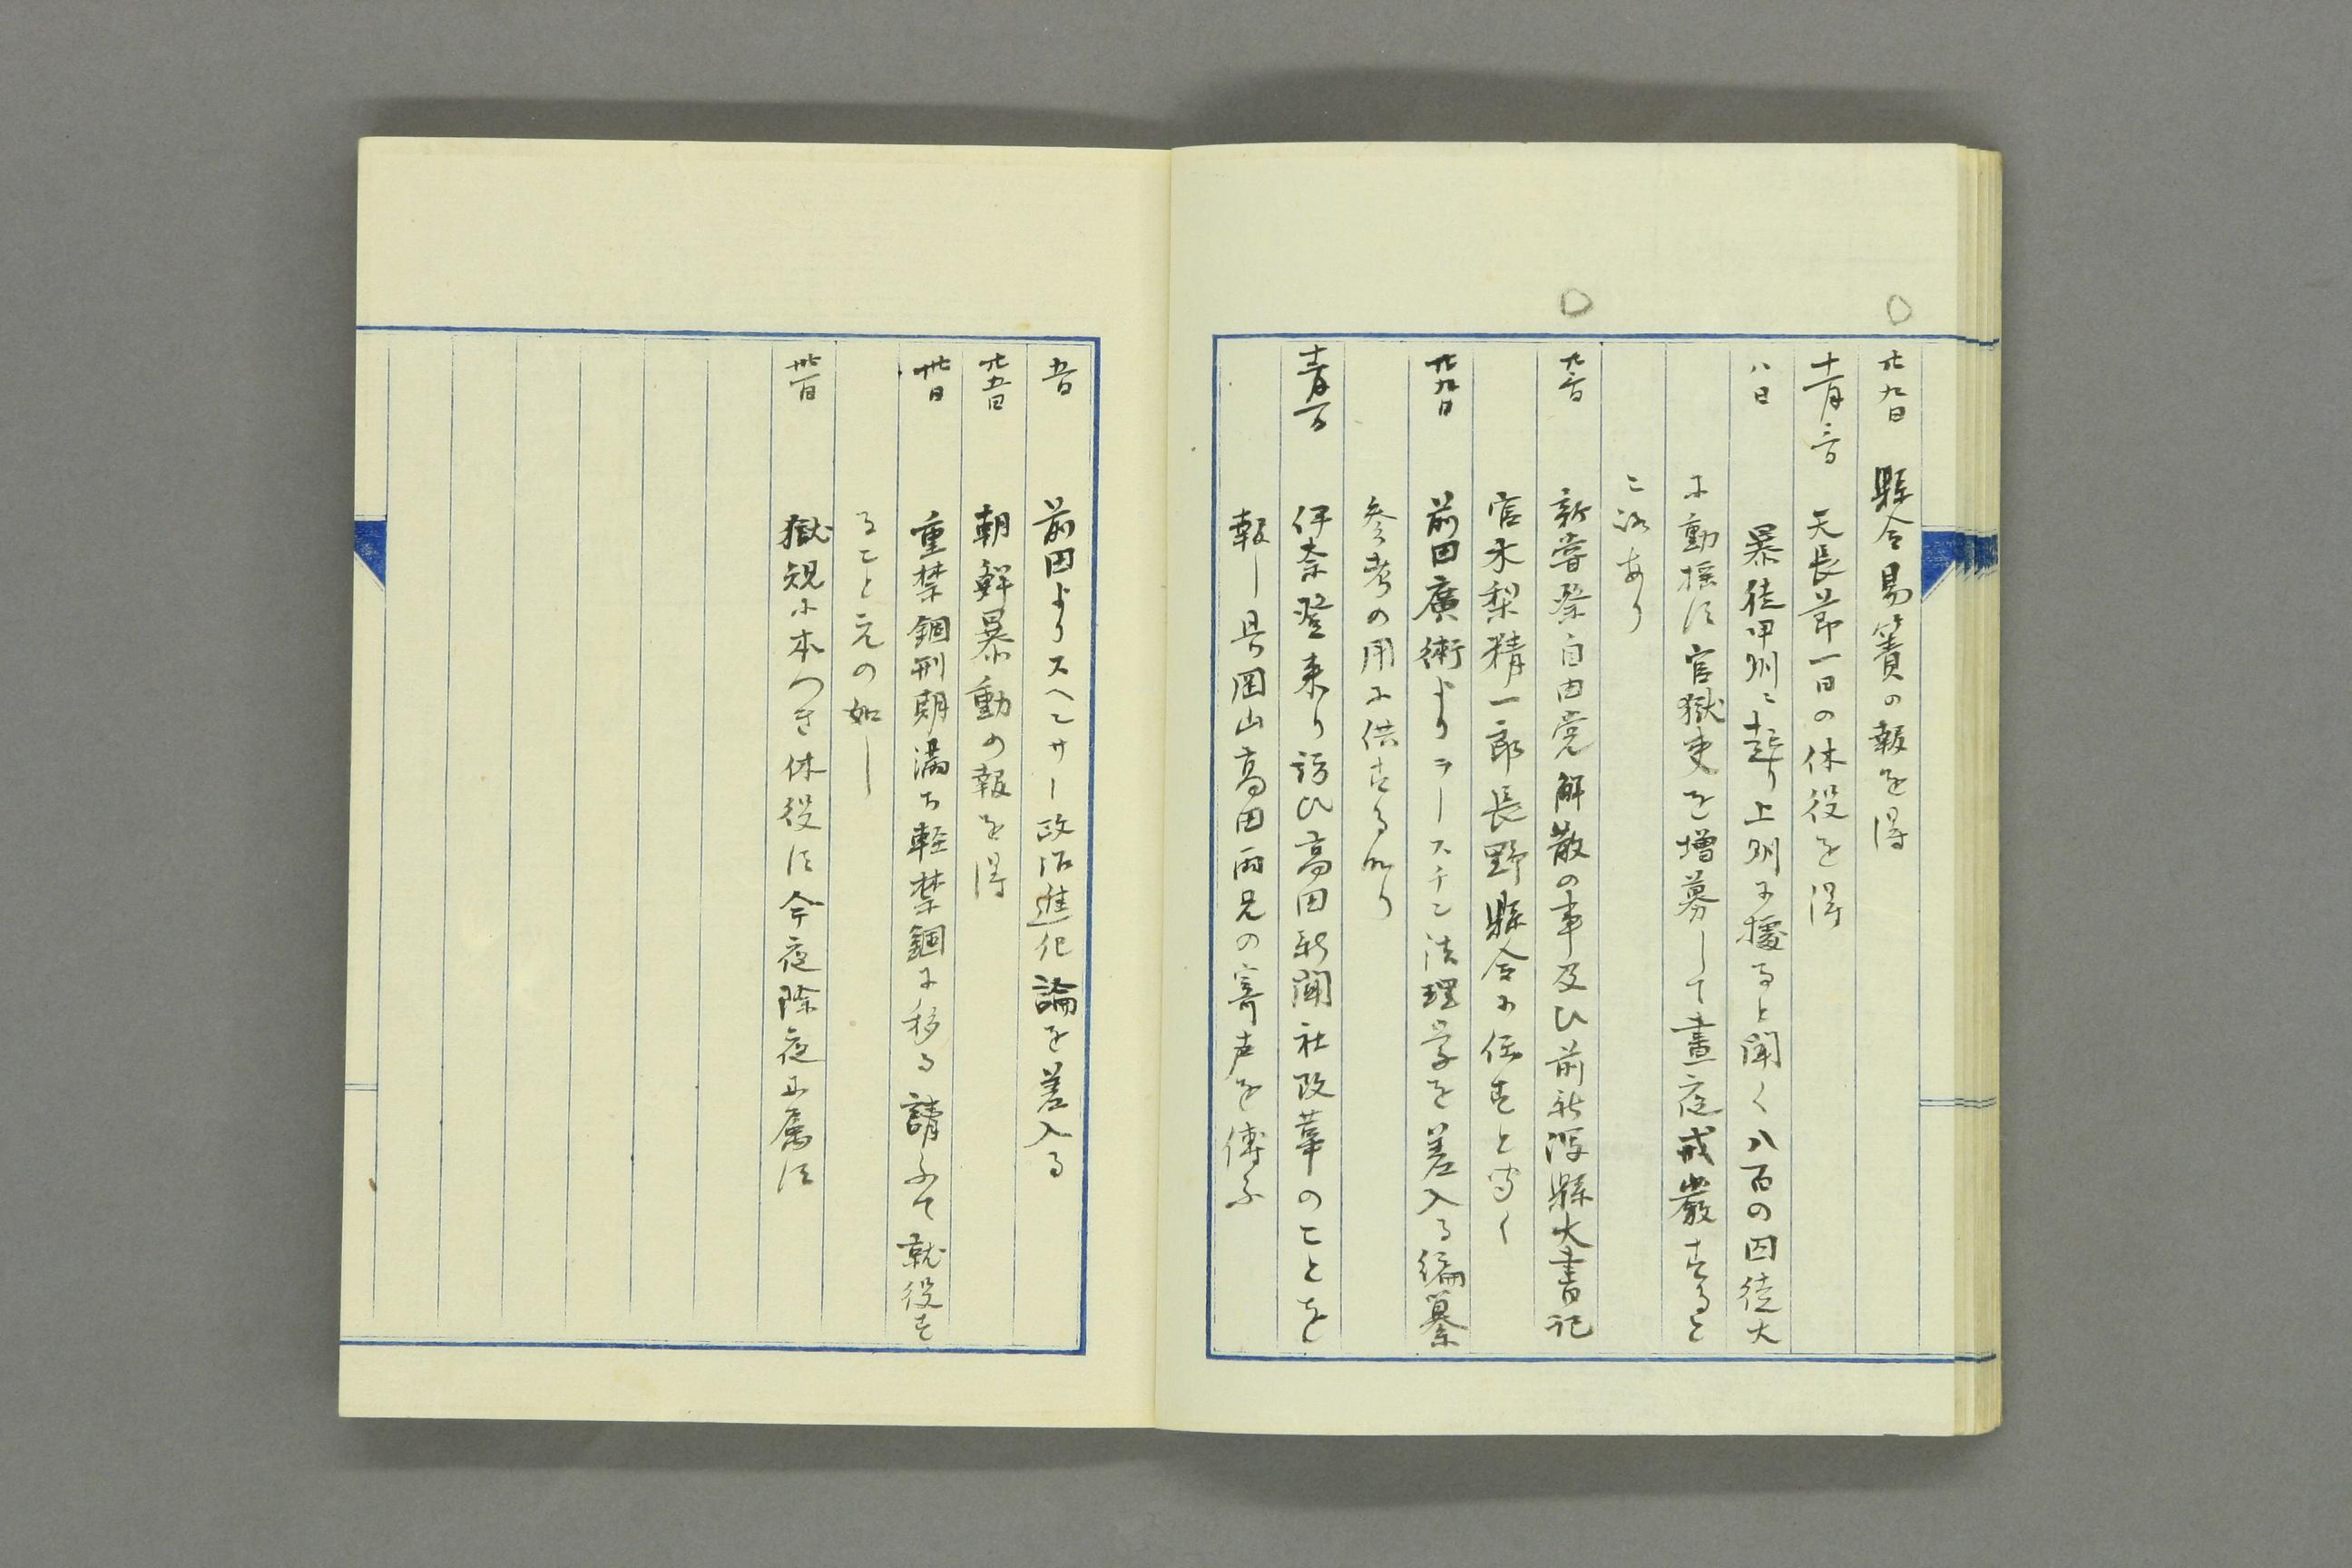 廿九日 縣令易簀の報を得
十一月三日 天長節一日の休役を得
八日 暴徒甲州に起り上州に擾ると聞く八百の囚徒大
に動揺す官獄吏を増募して昼夜戒嚴すると
ころあり
廿三日 新嘗祭自由党解散の事及ひ前新潟縣大書記
官木梨精一郎長野縣令に任すと聞く
廿九日 前田廣術よりラースチン法理学を差入る編纂
参考の用に供するなり
十二月一日 伊奈登来り訪ひ高田新聞社改革のことを
報し且岡山高田両兄の寄声を傳ふ
五日 前田よりスヘンサー政治進化論を差入る
廿五日 朝鮮暴動の報を得
卅日 重禁錮刑期満ち軽禁錮に移る請ふて就役す
ること元の如し
卅一日 獄規に本つき休役す今夜除夜に属す